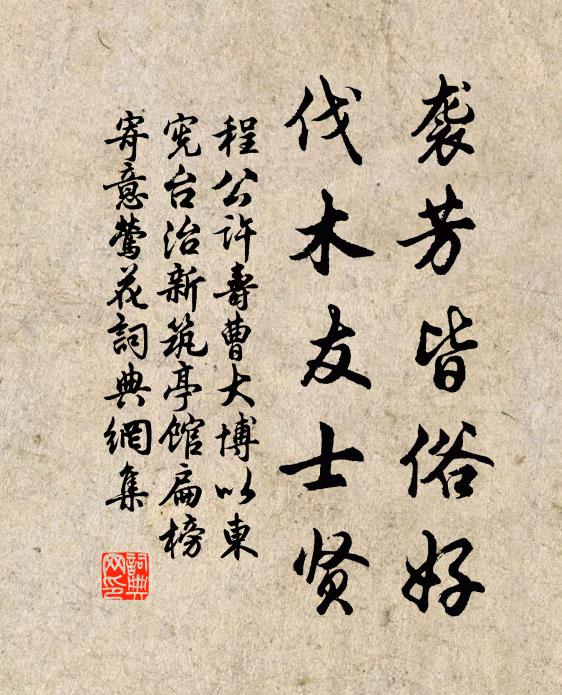 袭芳皆俗好
伐木友士贤
程公许寿曹大博以東
宪台治新筑亭館扁榜
寄意鶯花詞典網集
詞典
网印